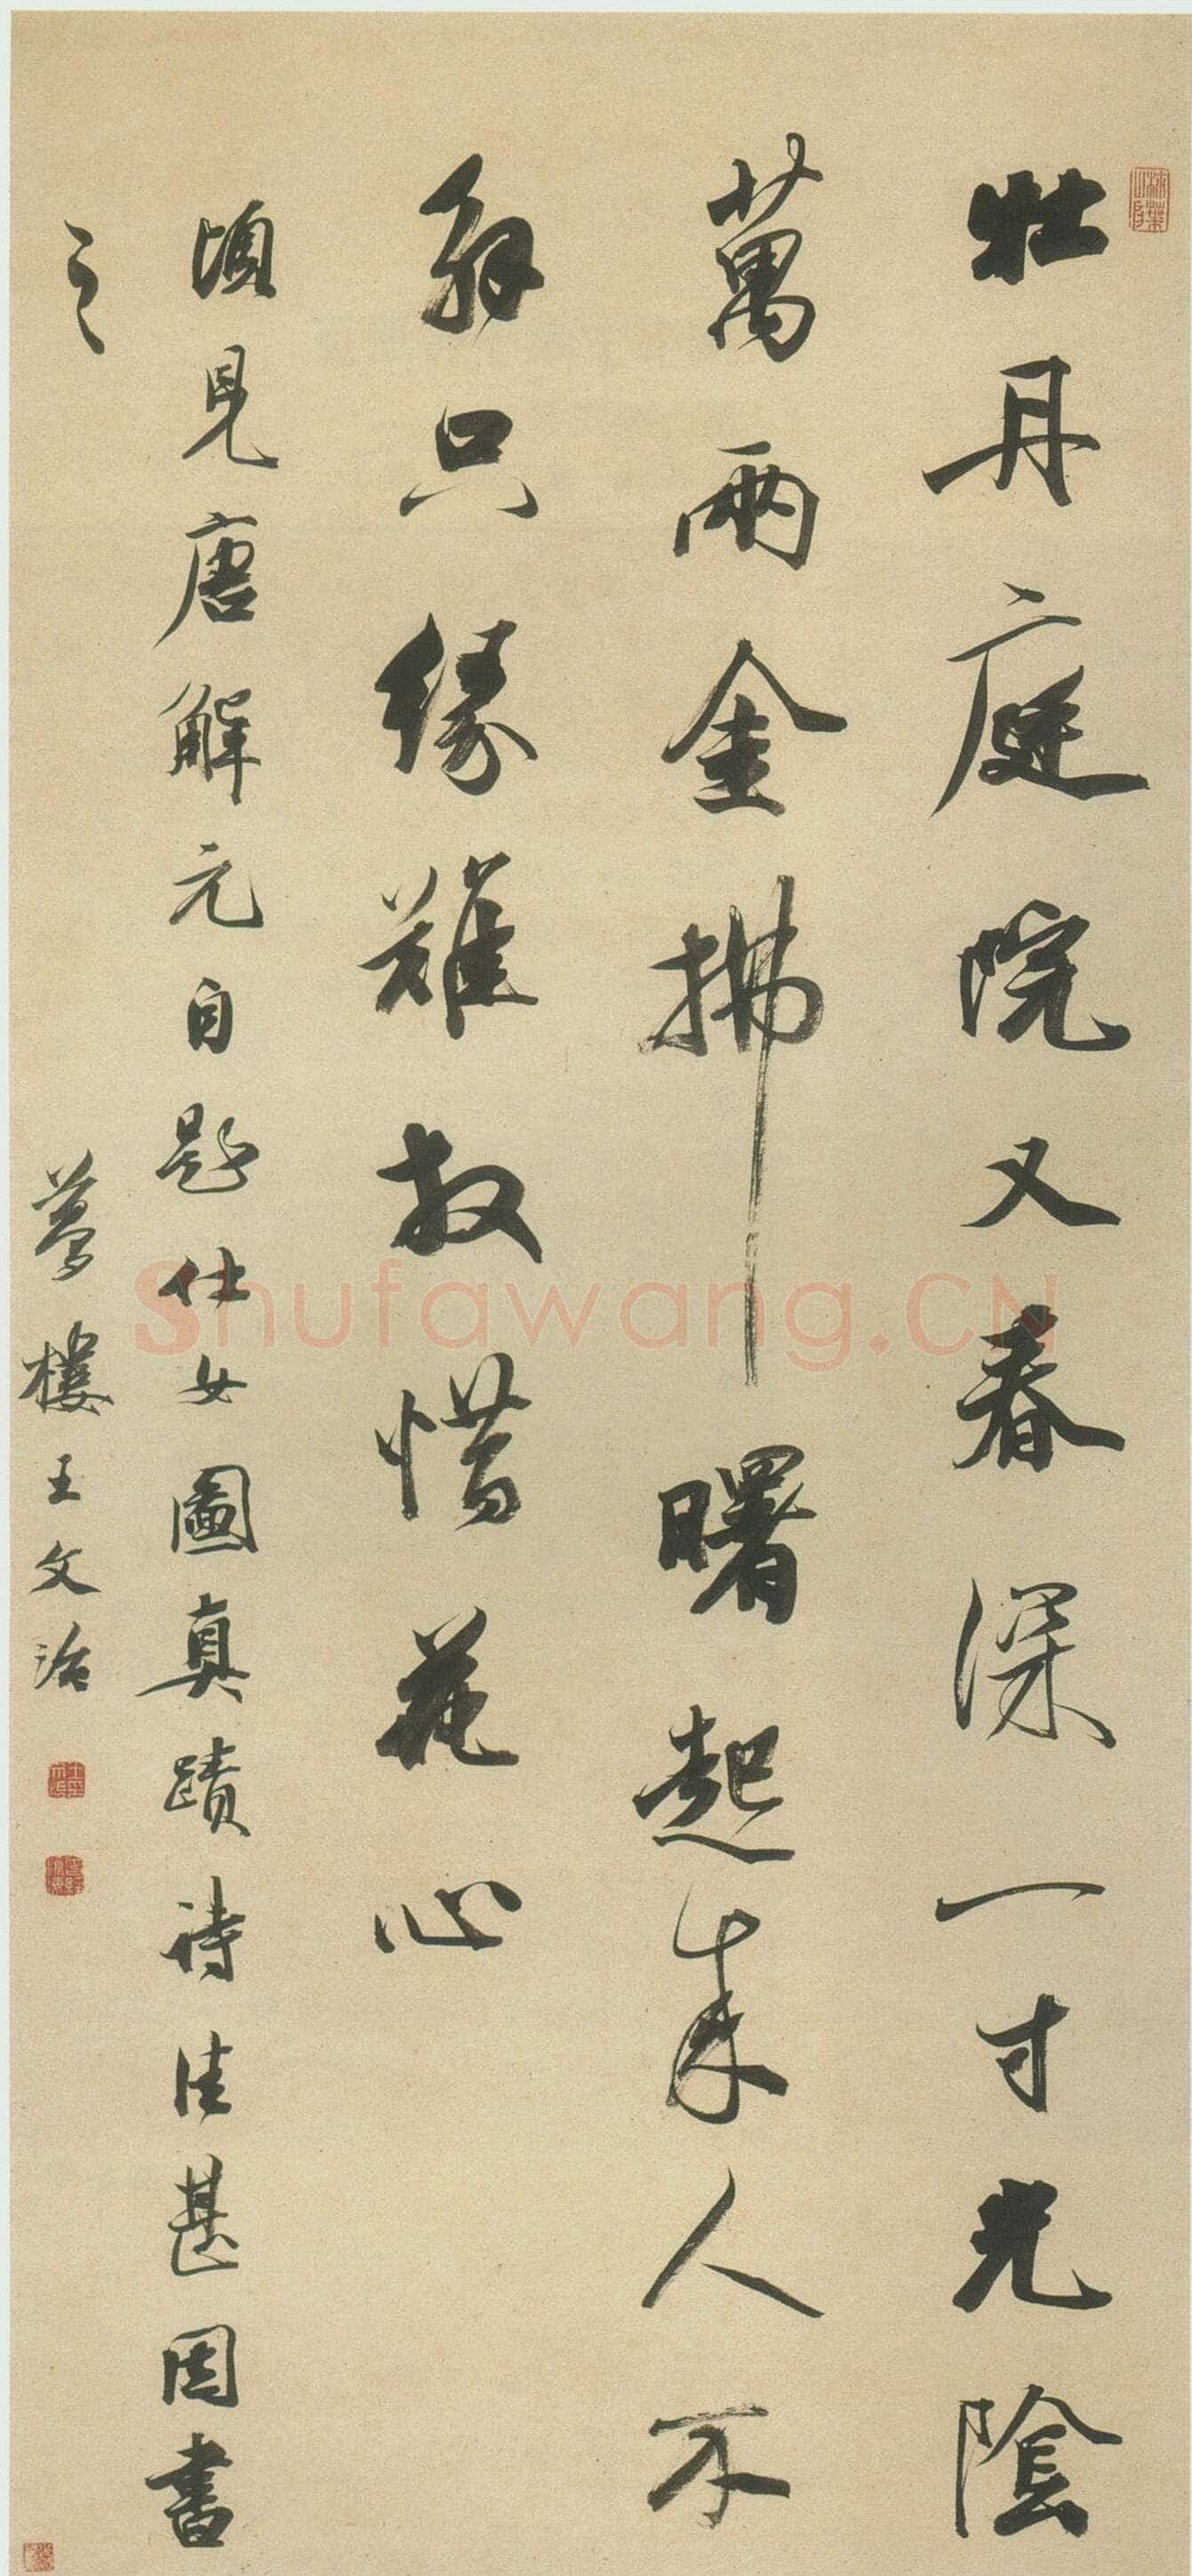 牡丹庭院又春深一寸光陰
萬兩金拂曙起來人不
解只緣難放惜花心
頃見唐解元自題仕女圖真蹟詩佳甚因書
之
夢樓王文治
Shufawang.CN